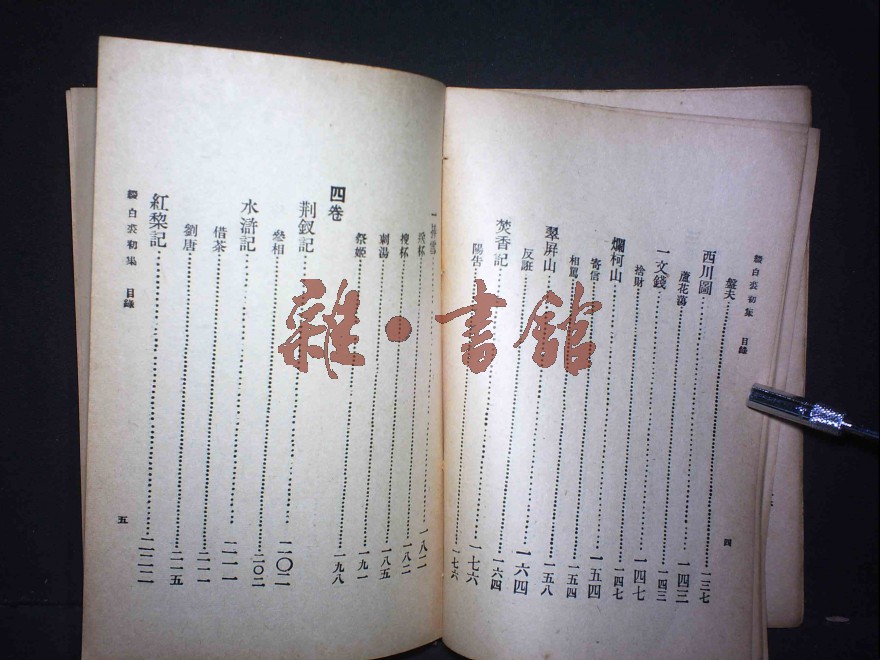 綴白裘初集 目錄
盤夫……一三七
西川圖……一四三
蘆花蕩……一四三
一文錢……一四七
捨財……一四七
爛柯山……一五四
寄信……一五四
相罵……一五八
翠屏山……一六四
反誑……一六四
焚香記……一七六
陽告……一七六
四
一捧雪……一八二
送杯……一八二
搜杯……一八五
刺湯……一九一
祭姬……一九八
四卷
荊釵記……二〇二
參相……二〇二
水滸記……二一一
借茶……二一一
劉唐……二一五
紅棃記……二二二
綴白裘初集 目錄
五
雜·書館